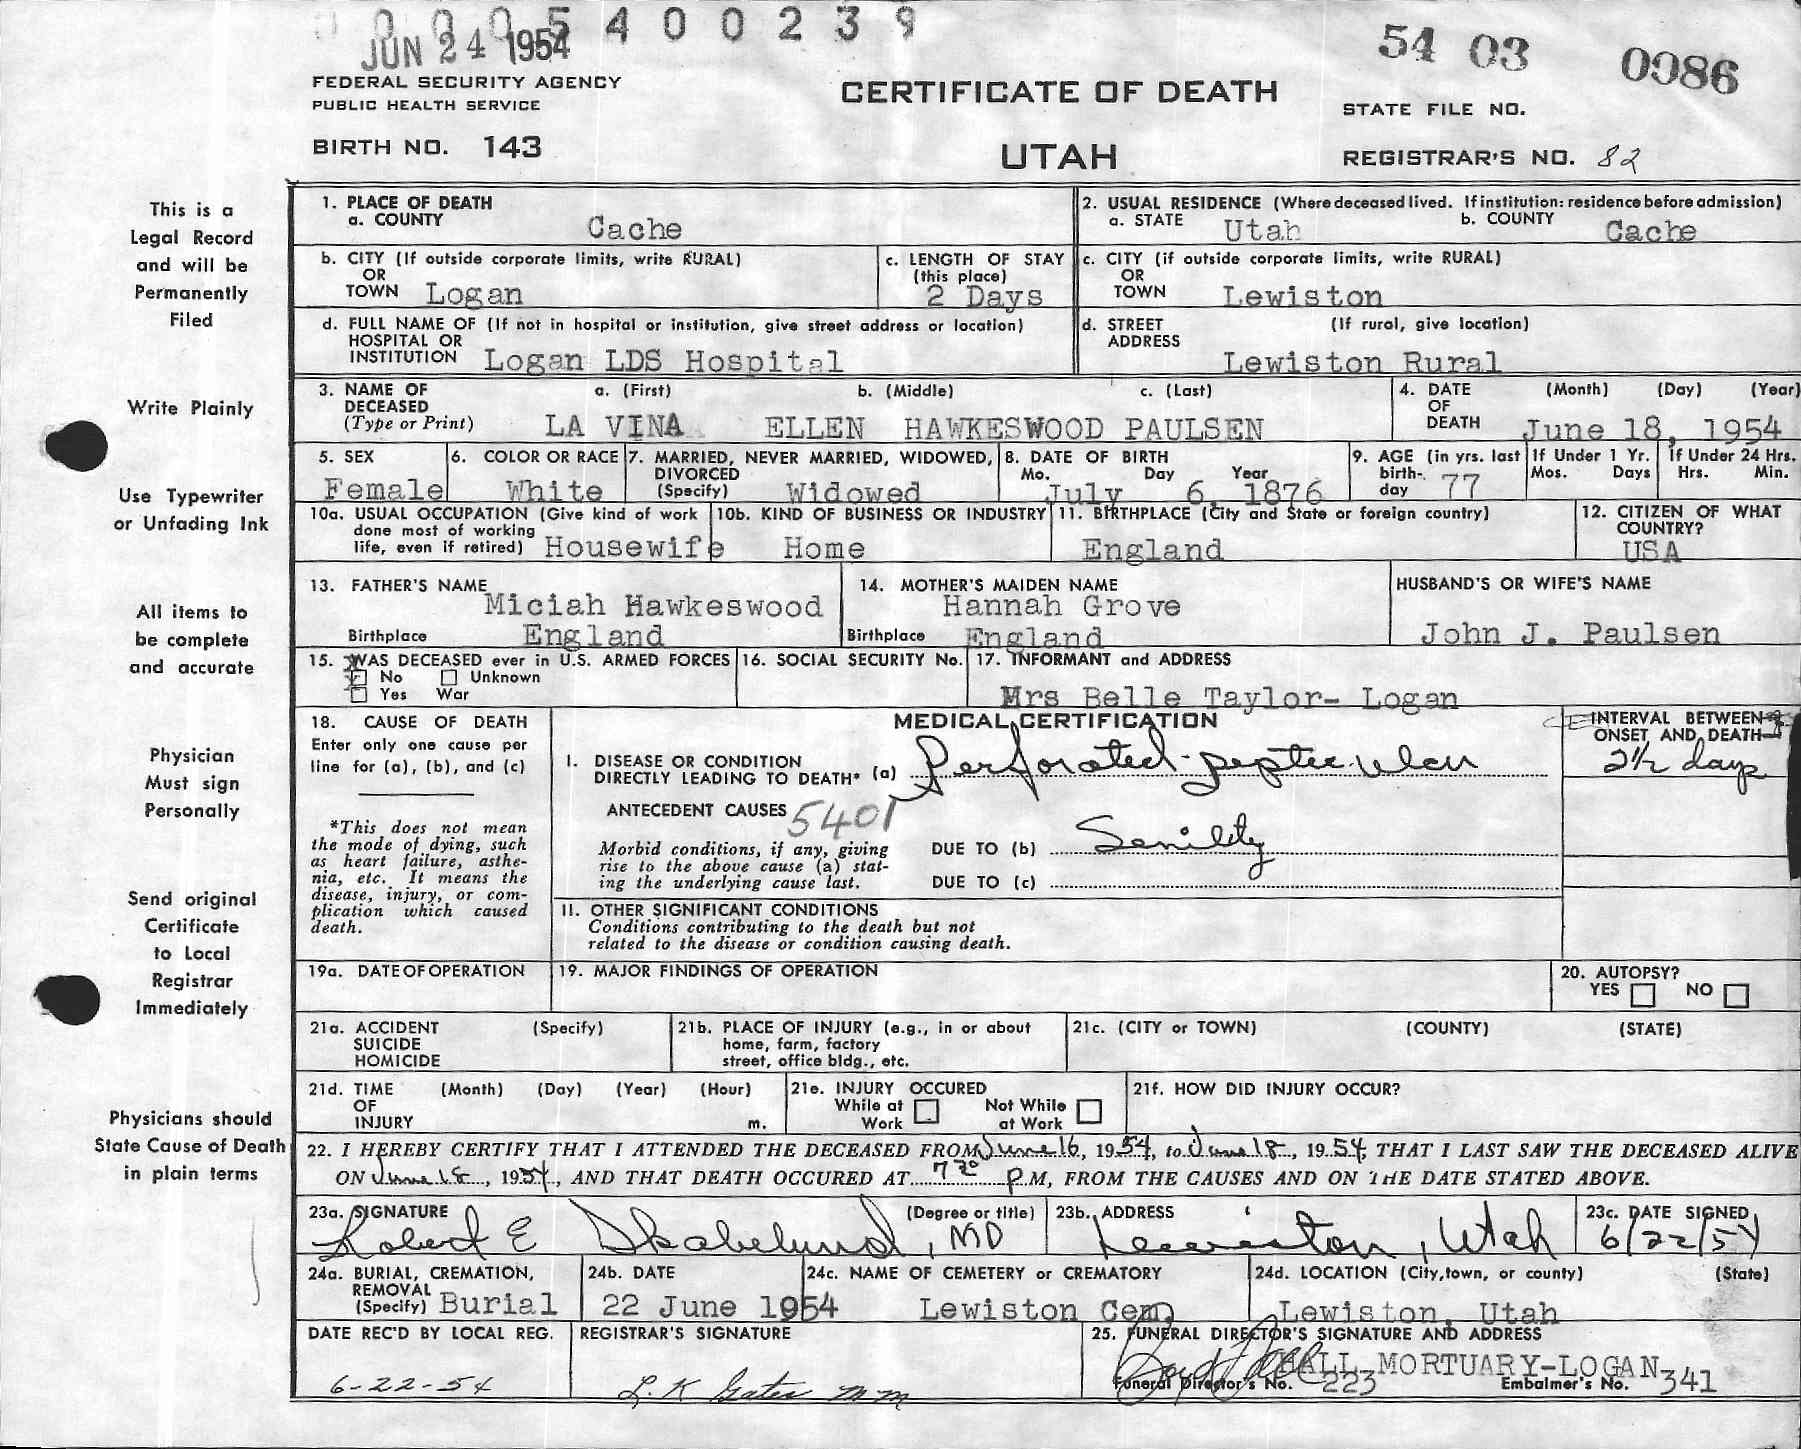 0 0 0 5 4 0 0 2 3 9
JUN 24 1954
54 03 0986
FEDERAL SECURITY AGENCY
PUBLIC HEALTH SERVICE
CERTIFICATE OF DEATH
STATE FILE NO.
BIRTH NO. 143
UTAH
REGISTRAR'S NO. 82
This is a
Legal Record
and will be
Permanently
Filed
Write Plainly
Use Typewriter
or Unfading Ink
All items to
be complete
and accurate
Physician
Must sign
Personally
Send original
Certificate
to Local
Registrar
Immediately
Physicians should
State Cause of Death
in plain terms
1. PLACE OF DEATH
a. COUNTY Cache
2. USUAL RESIDENCE (Where deceased lived. If institution: residence before admission)
a. STATE Utah b. COUNTY Cache
b. CITY (If outside corporate limits, write RURAL)
OR
TOWN Logan
c. LENGTH OF STAY
(this place)
2 Days
c. CITY (if outside corporate limits, write RURAL)
OR
TOWN Lewiston
d. FULL NAME OF (If not in hospital or institution, give street address or location)
HOSPITAL OR
INSTITUTION Logan LDS Hospital
d. STREET (If rural, give location)
ADDRESS
Lewiston Rural
3. NAME OF a. (First) b. (Middle) c. (Last)
DECEASED
(Type or Print) LA VINA ELLEN HAWKESWOOD PAULSEN
4. DATE (Month) (Day) (Year)
OF
DEATH June 18, 1954
5. SEX
Female
6. COLOR OR RACE
White
7. MARRIED, NEVER MARRIED, WIDOWED,
DIVORCED
(Specify) Widowed
8. DATE OF BIRTH
Mo. Day Year
July 6, 1876
9. AGE (in yrs. last
birth-
day 77
If Under 1 Yr.
Mos. Days
If Under 24 Hrs.
Hrs. Min.
10a. USUAL OCCUPATION (Give kind of work
done most of working
life, even if retired) Housewife
10b. KIND OF BUSINESS OR INDUSTRY
Home
11. BIRTHPLACE (City and State or foreign country)
England
12. CITIZEN OF WHAT
COUNTRY?
USA
13. FATHER'S NAME
Miciah Hawkeswood
Birthplace England
14. MOTHER'S MAIDEN NAME
Hannah Grove
Birthplace England
HUSBAND'S OR WIFE'S NAME
John J. Paulsen
15. WAS DECEASED ever in U.S. ARMED FORCES
No Unknown
Yes War
16. SOCIAL SECURITY No.
17. INFORMANT and ADDRESS
Mrs Belle Taylor- Logan
18. CAUSE OF DEATH
Enter only one cause per
line for (a), (b), and (c)
*This does not mean
the mode of dying, such
as heart failure, asthe-
nia, etc. It means the
disease, injury, or com-
plication which caused
death.
MEDICAL CERTIFICATION
INTERVAL BETWEEN
ONSET AND DEATH
I. DISEASE OR CONDITION
DIRECTLY LEADING TO DEATH* (a) Perforated peptic ulcer 2½ days
ANTECEDENT CAUSES 5401
Morbid conditions, if any, giving
rise to the above cause (a) stat-
ing the underlying cause last.
DUE TO (b) Senility
DUE TO (c)
II. OTHER SIGNIFICANT CONDITIONS
Conditions contributing to the death but not
related to the disease or condition causing death.
19a. DATE OF OPERATION
19. MAJOR FINDINGS OF OPERATION
20. AUTOPSY?
YES NO
21a. ACCIDENT (Specify)
SUICIDE
HOMICIDE
21b. PLACE OF INJURY (e.g., in or about
home, farm, factory
street, office bldg., etc.
21c. (CITY or TOWN) (COUNTY) (STATE)
21d. TIME (Month) (Day) (Year) (Hour)
OF
INJURY m.
21e. INJURY OCCURED
While at Not While
Work at Work
21f. HOW DID INJURY OCCUR?
22. I HEREBY CERTIFY THAT I ATTENDED THE DECEASED FROM June 16, 1954, to June 18, 1954, THAT I LAST SAW THE DECEASED ALIVE
ON June 18, 1954, AND THAT DEATH OCCURED AT 7 30 P.M, FROM THE CAUSES AND ON THE DATE STATED ABOVE.
23a. SIGNATURE (Degree or title)
Robert E Skabelund, MD
23b. ADDRESS
Lewiston, Utah
23c. DATE SIGNED
6/22/54
24a. BURIAL, CREMATION,
REMOVAL
(Specify) Burial
24b. DATE
22 June 1954
24c. NAME OF CEMETERY or CREMATORY
Lewiston Cem
24d. LOCATION (City, town, or county) (State)
Lewiston, Utah
DATE REC'D BY LOCAL REG.
6-22-54
REGISTRAR'S SIGNATURE
25. FUNERAL DIRECTOR'S SIGNATURE AND ADDRESS
HALL MORTUARY-LOGAN
Funeral Director's No. 223 Embalmer's No. 341